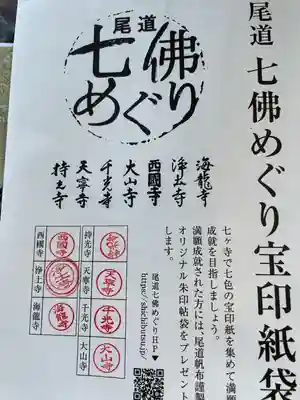 尾道 七佛めぐり宝印紙袋
尾道
七佛
めぐり
海龍寺
浄土寺
西國寺
大山寺
千光寺
天寧寺
持光寺
七ヶ寺で七色の宝印紙を集めて満願
成就を目指しましょう。
満願成就された方には、尾道帆布謹製
オリジナル朱印帖袋をプレゼント
します。
尾道七佛めぐりHP▼
https://shichibutsu.jp/
持光寺
天寧寺
千光寺
大山寺
西國寺
浄土寺
海龍寺
天寧寺
千光寺
大山寺
西國寺
海龍寺